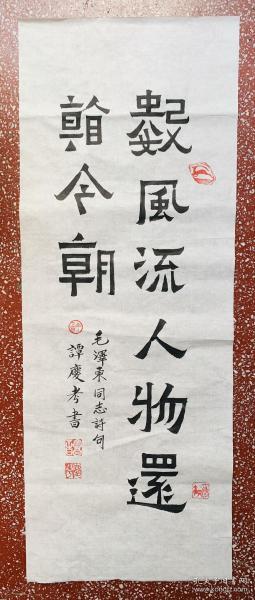 數風流人物還
看今朝
毛澤東同志詩句
譚慶考書